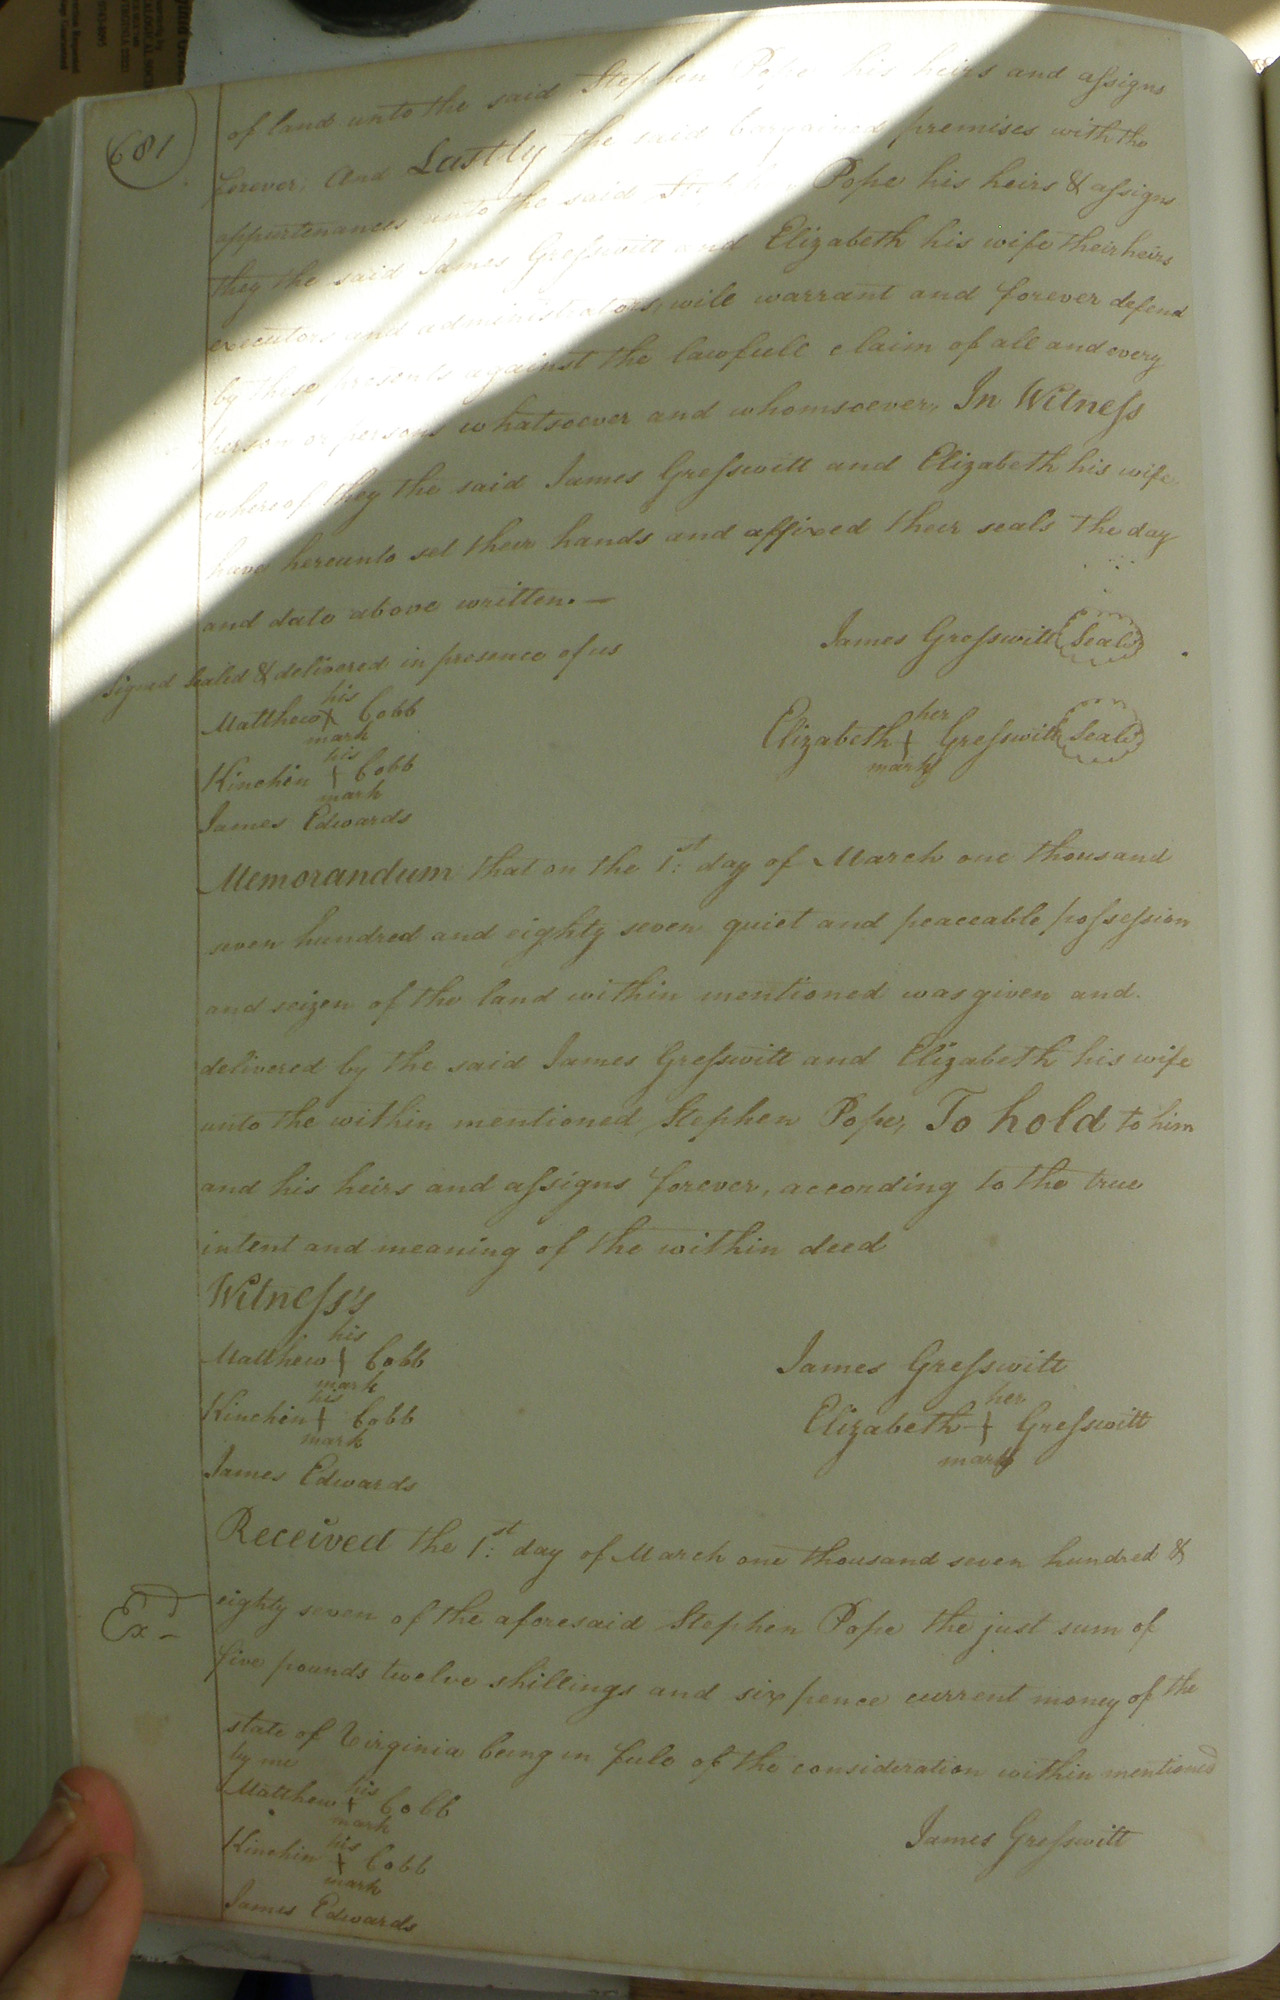 681
of land unto the said Stephen Pope his heirs and aſsigns
forever. And Lastly the said bargained premises with the
appurtenances unto the said Stephen Pope his heirs & aſsigns
they the said James Greſswitt and Elizabeth his wife their heirs
executors and administrators, will warrant and forever defend
by these presents against the lawfull claim of all and every
person or persons whatsoever and whomsoever, In Witneſs
whereof they the said James Greſswitt and Elizabeth his wife
have hereunto set their hands and affixed their seals the day
and date above written. —
Signed Sealed & delivered in presence of us
James Greſswitt Seal
his
Matthew Cobb
mark
her
Elizabeth + Greſswitt Seal
mark
his
Kinchin + Cobb
mark
James Edwards
Memorandum that on the 1st: day of March one thousand
seven hundred and eighty seven quiet and peaceable poſseſsion
and seizen of the land within mentioned was given and
delivered by the said James Greſswitt and Elizabeth his wife
unto the within mentioned Stephen Pope, To hold to him
and his heirs and aſsigns forever, according to the true
intent and meaning of the within deed
Witneſs's
his
Matthew + Cobb
mark
James Greſswitt
his
Kinchin + Cobb
mark
her
Elizabeth + Greſswitt
mark
James Edwards
Received the 1st: day of March one thousand seven hundred &
eighty seven of the aforesaid Stephen Pope the just sum of
Exd
five pounds twelve shillings and six pence current money of the
state of Virginia being in full of the consideration within mentioned
by me
his
Matthew + Cobb
mark
James Greſswitt
his
Kinchin + Cobb
mark
James Edwards